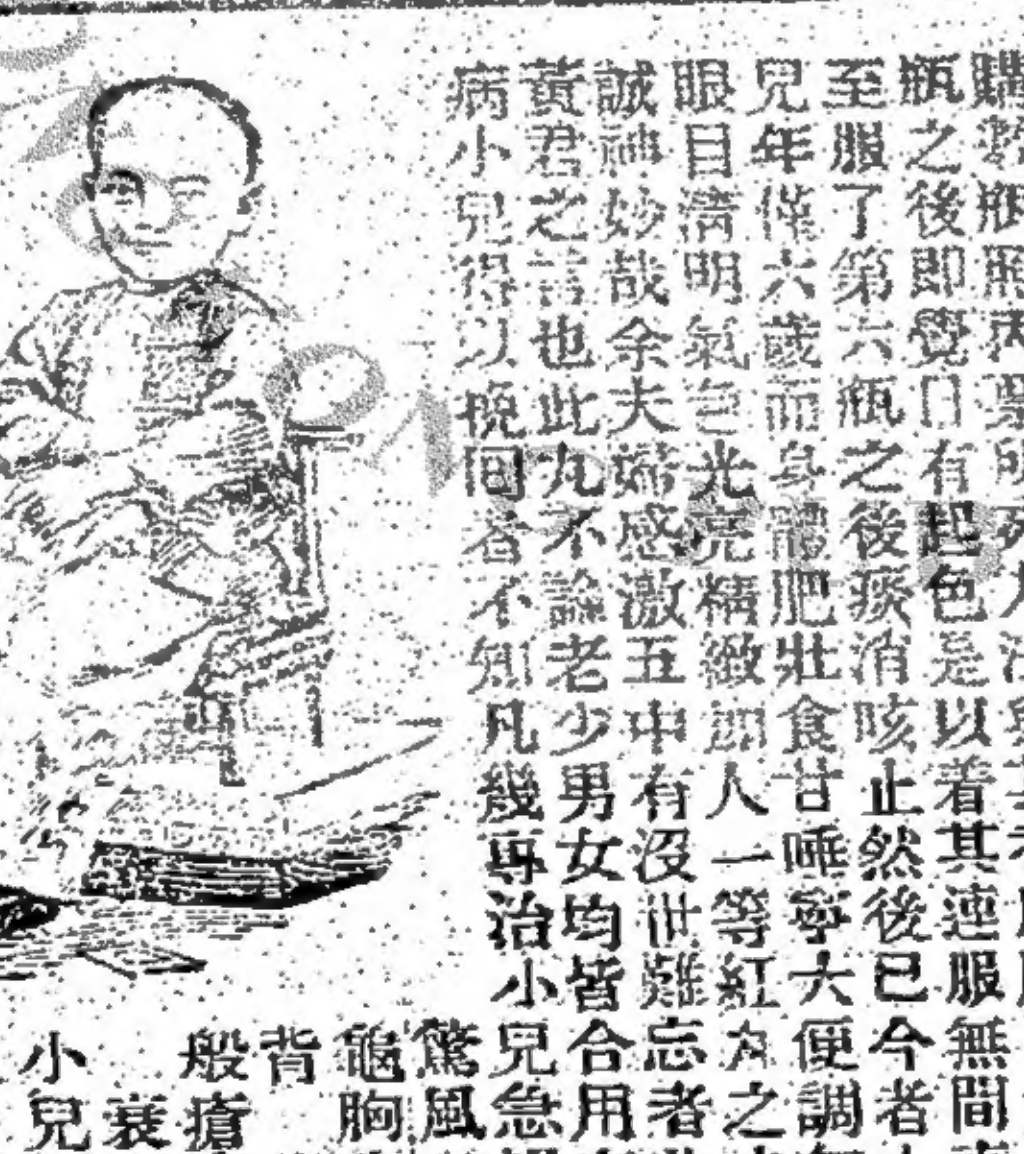 購瓶照
瓶之後即覺日有起色是以着其連服無間
至服了第六瓶之後痰消咳止然後已今者
兒年僅六歲而身體肥壯食甘唾寧大便調
眼目清明氣色光亮精緻卽人一等紅丸之
誠神妙哉余夫婦感激五中有沒世難忘者
黃君之言也此丸不論老少男女均皆合用
病小兒得以挽回者不知凡幾專治小兒急
驚風
龜胸
背
般瘡
衰
小兒